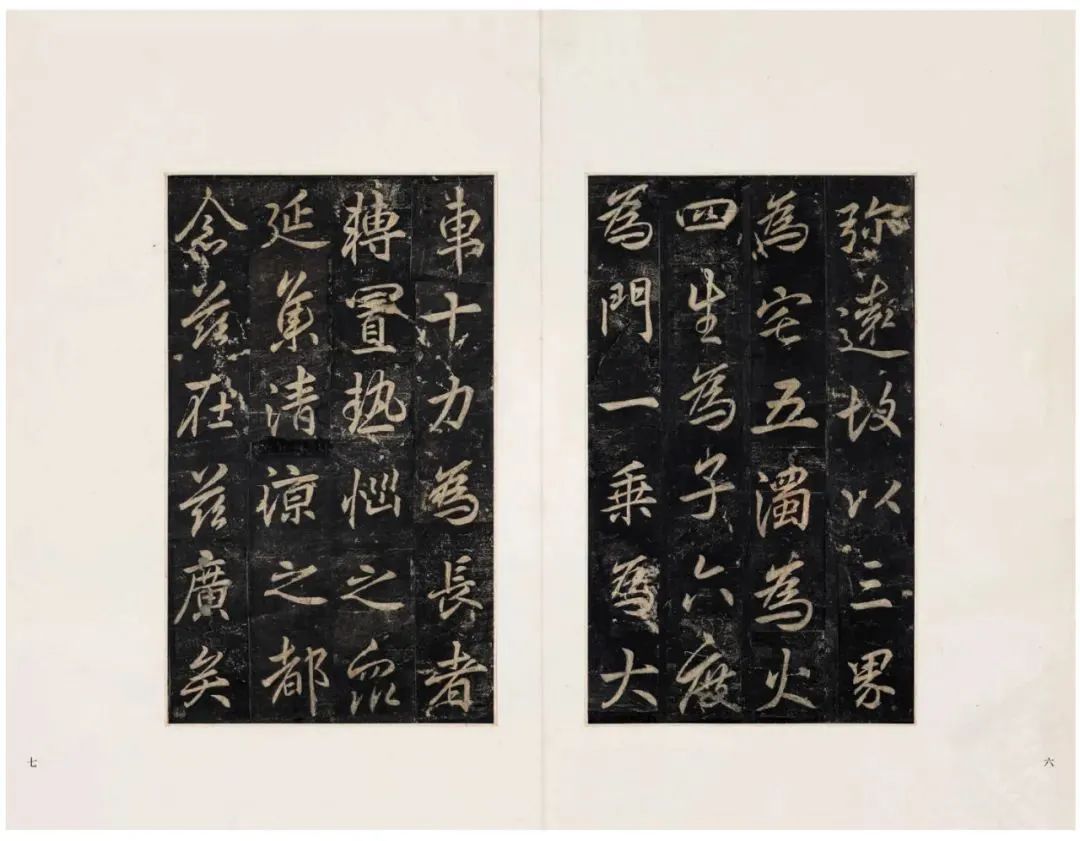 弥遠故以三界
為宅五濁為火
四生為子六度
為門一乗為大
六
車十力為長者
轉置熱惱之衆
延集清涼之都
念茲在茲廣矣
七